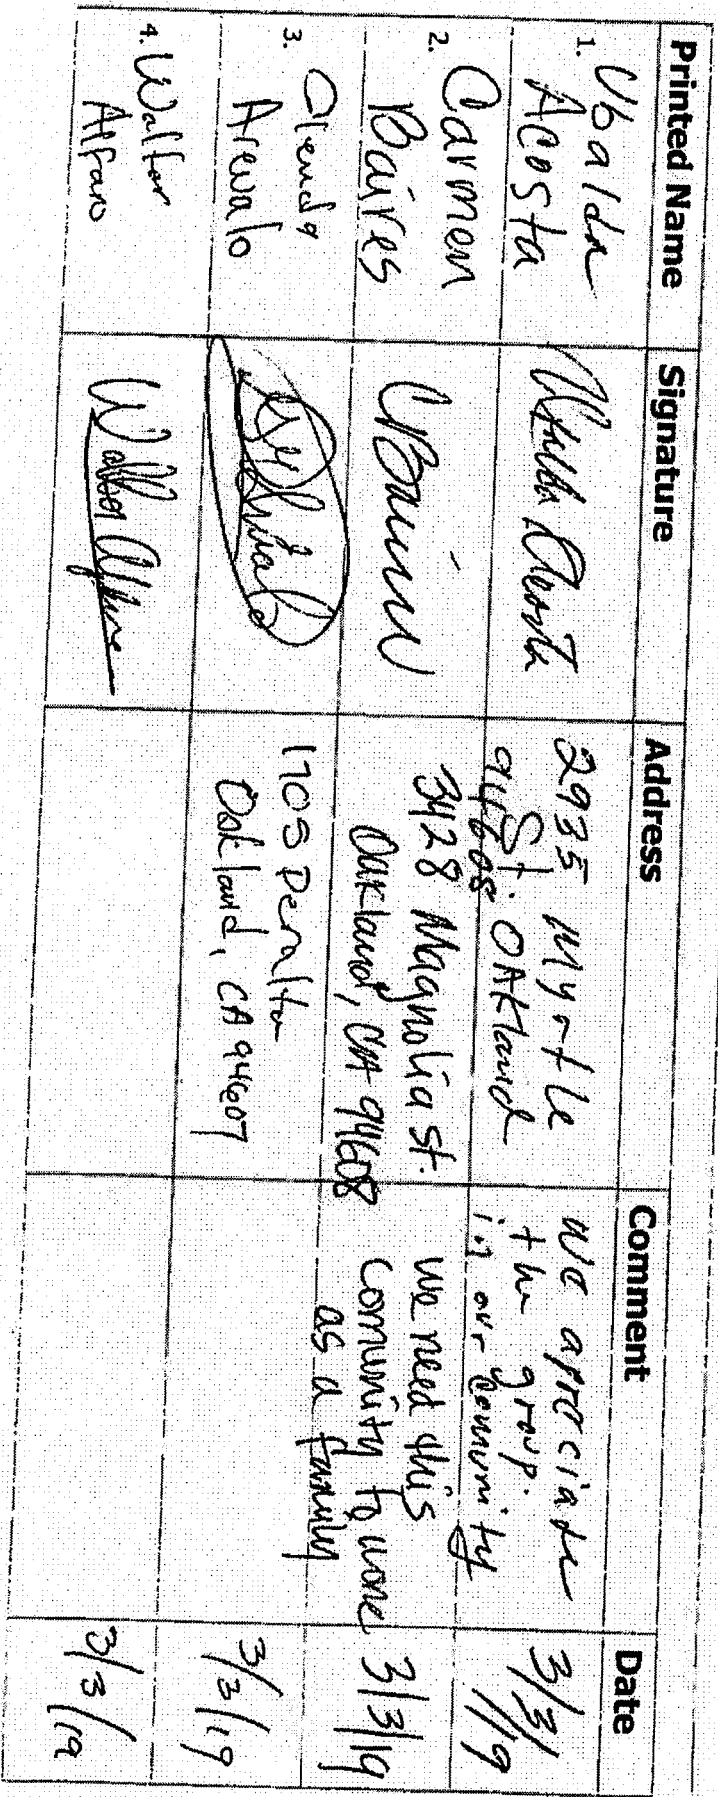 Printed Name Signature Address Comment Date
1. Ubalda
Acosta
2935 Myrtle
St. OAKland
94608
We aprociade
the group.
in our comunity
3/3/
/19
2. Carmen
Baires
CBaires
3428 Magnolia st.
Oakland, CA 94608
we need this
comunity to
as a family
3/3/19
3.
Arevalo
1705 Peralta
Oakland, CA 94607
3/3/19
4. Walter
Alfaro
Walter Alfaro
3/3/19